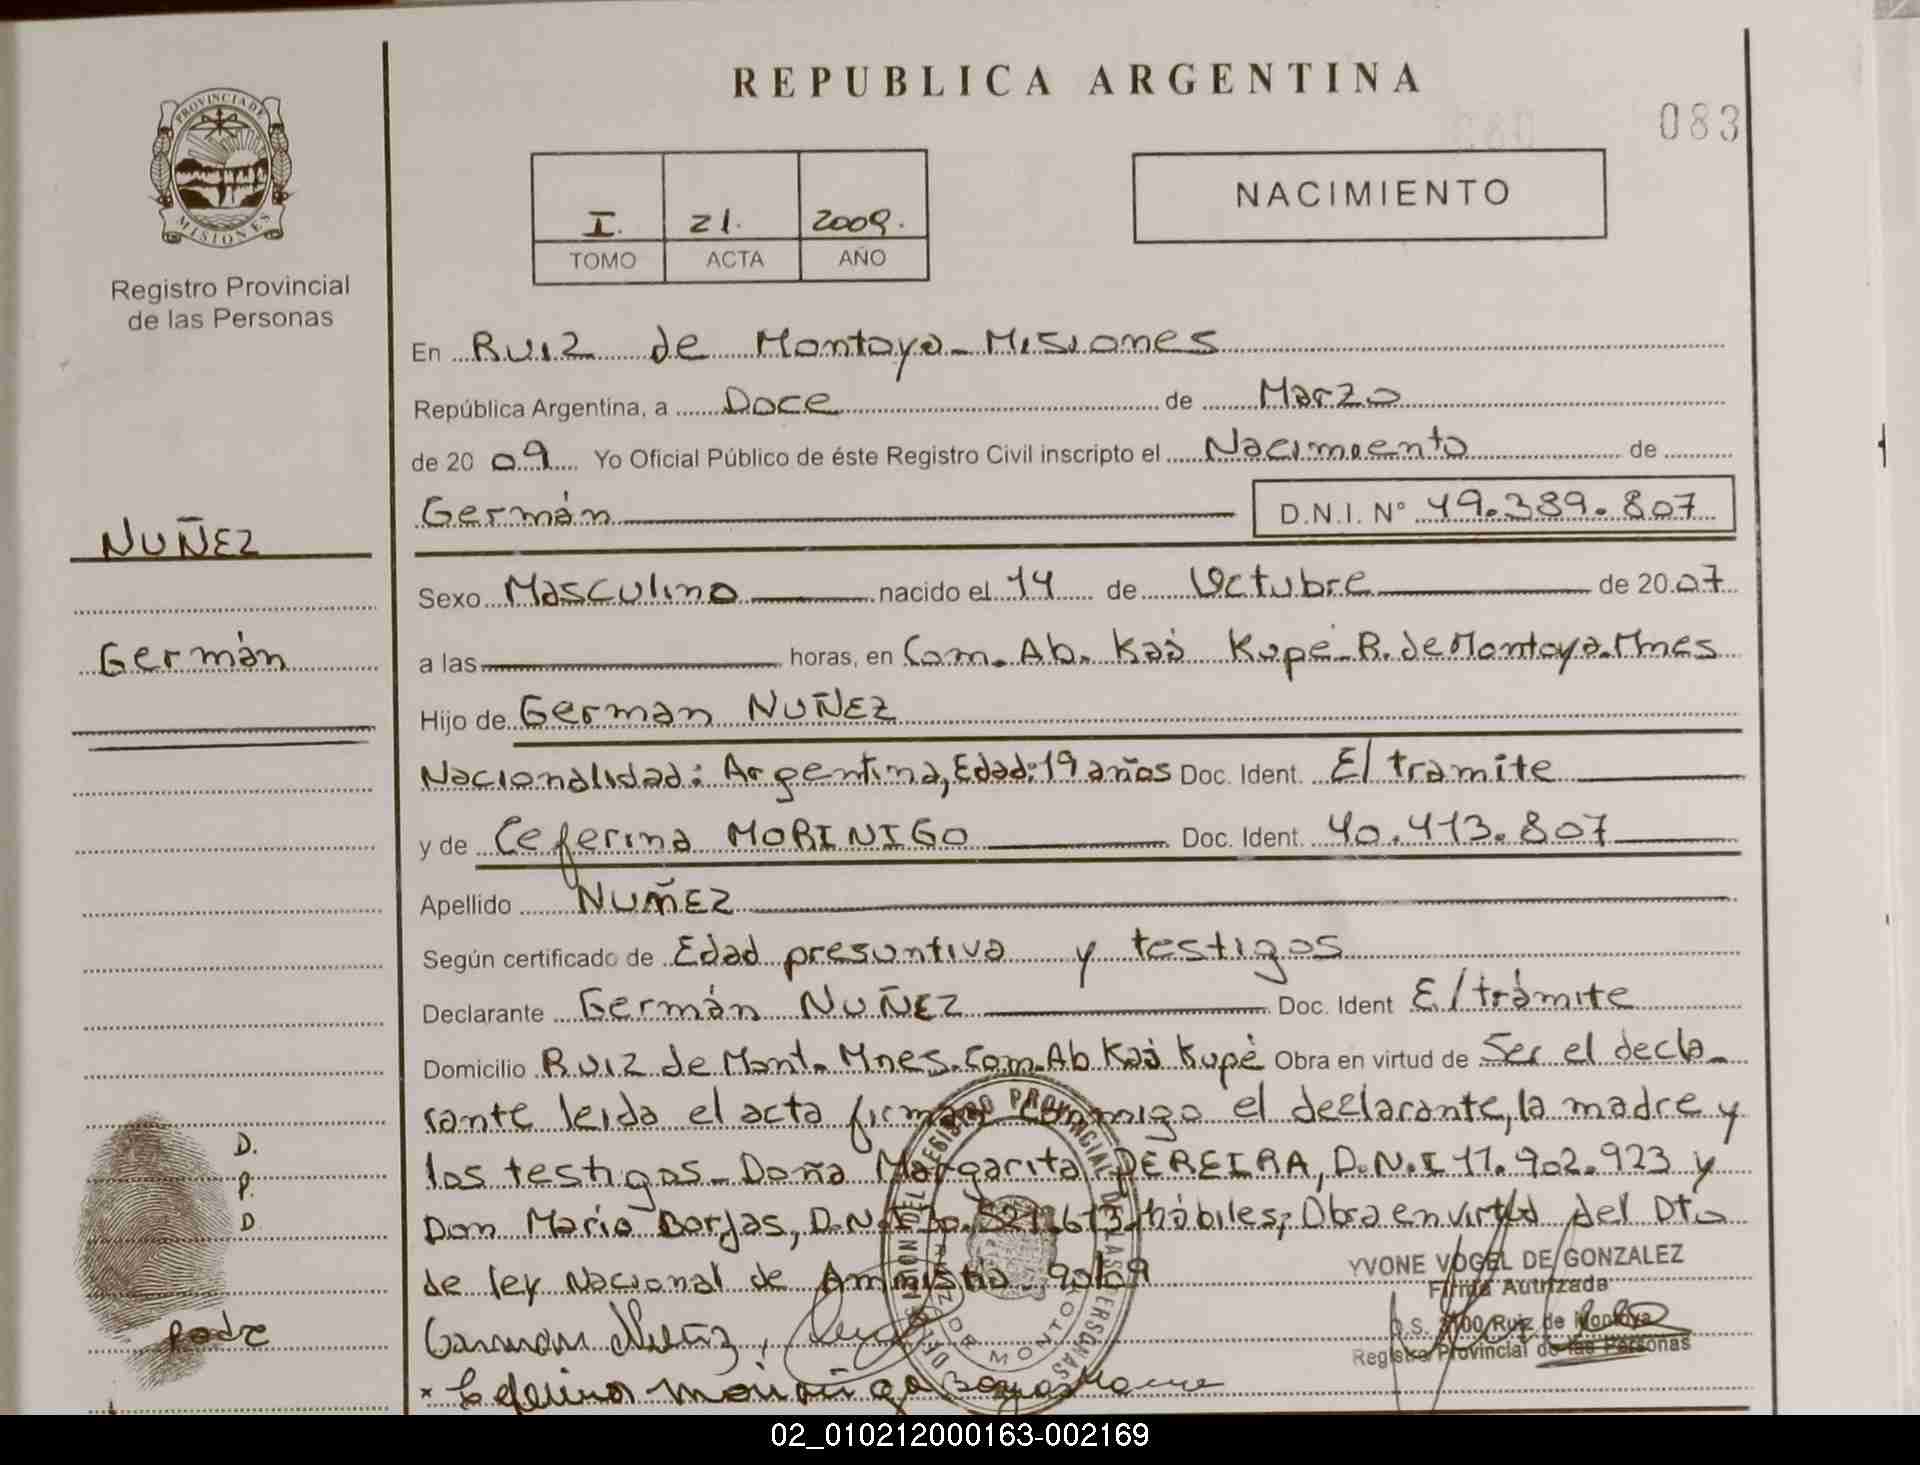 REPUBLICA ARGENTINA
083
PROVINCIA DE
MISIONES
Registro Provincial
de las Personas
I. 21. 2009.
TOMO ACTA AÑO
NACIMIENTO
En Ruiz de Montoya - Misiones
República Argentina, a Doce de Marzo
de 20 09 Yo Oficial Público de éste Registro Civil inscripto el Nacimiento de
Germán D.N.I. N° 49.389.807
NUÑEZ
Germán
Sexo Masculino nacido el 14 de Octubre de 20 07
a las horas, en Com. Ab. Kaá Kupé - R. de Montoya. Mnes
Hijo de German NUÑEZ
Nacionalidad: Argentina, Edad: 19 años Doc. Ident. E/ tramite
y de Ceferina MORINIGO Doc. Ident. 40.413.807
Apellido NUÑEZ
Según certificado de Edad presuntiva y testigos
Declarante Germán NUÑEZ Doc. Ident E/trámite
Domicilio Ruiz de Mont. Mnes. Com. Ab Kaá Kupé Obra en virtud de Ser el decla-
rante leida el acta firman conmigo el declarante, la madre y
los testigos - Doña Margarita PEREIRA, D.N.I 17.902.923 y
Don Mario Borjas, D.N.I hábiles; Obra en virtud del Dto
de ley Nacional de Amnistia 90/09
D.
P.
D
Padre
YVONE VOGEL DE GONZALEZ
Firma Autrizada
D.S. 3100 Ruiz de Montoya
Registro Provincial de las Personas
German Nuñez
* Ceferina Morinigo
02_010212000163-002169